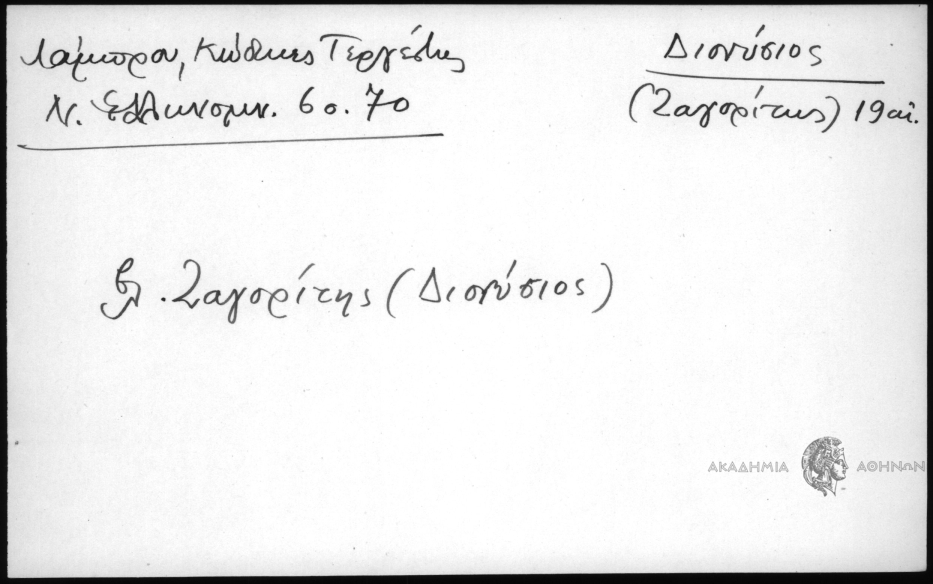 Λάμπρου, Κώδικες Τεργέστης
Ν. Ἑλληνομν. 60.70
Διονύσιος
(Ζαγορίτης) 19 αἰ.
βλ. Ζαγορίτης (Διονύσιος)
ΑΚΑΔΗΜΙΑ ΑΘΗΝΩΝ